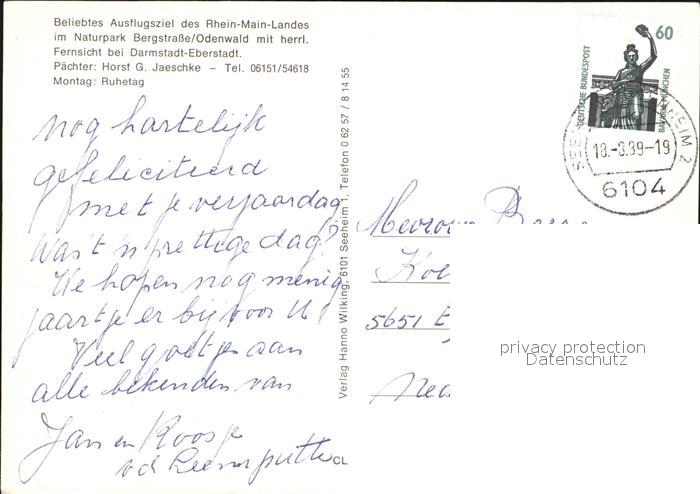 Beliebtes Ausflugsziel des Rhein-Main-Landes
im Naturpark Bergstraße/Odenwald mit herrl.
Fernsicht bei Darmstadt-Eberstadt.
Pächter: Horst G. Jaeschke – Tel. 06151/54618
Montag: Ruhetag
nog hartelijk
gefeliciteerd
met je verjaardag
Was 't 'n prettige dag?
We hopen nog menig
jaartje er bij voor U
Veel goetjes aan
alle bekenden van
Jan en Roosje
vd
CL
Verlag Hanno Wilking, 6101 Seeheim 1, Telefon 0 62 57 / 8 14 55
DEUTSCHE BUNDESPOST
60
BAVARIA MÜNCHEN
SEEHEIM 2
18.-8.89-19
6104
Mevrouw
5651
privacy protection
Datenschutz